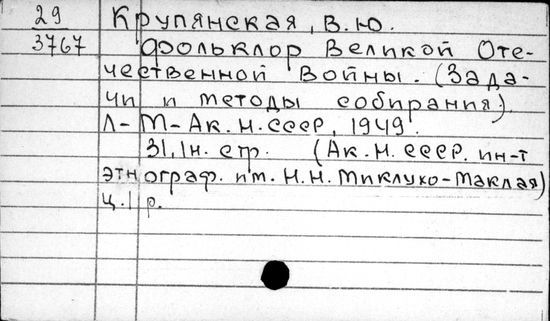 29 Крупянская, В.Ю.
3767 Фольклор Великой Оте-
чественной Войны. (Зада-
чи и методы собирания).
Л-М-Ак.Н.СССР, 1949.
31,1н. стр. (Ак.Н.СССР. ин-т
этнограф. им. Н.Н. Миклухо-Маклая)
Ц.1 р.